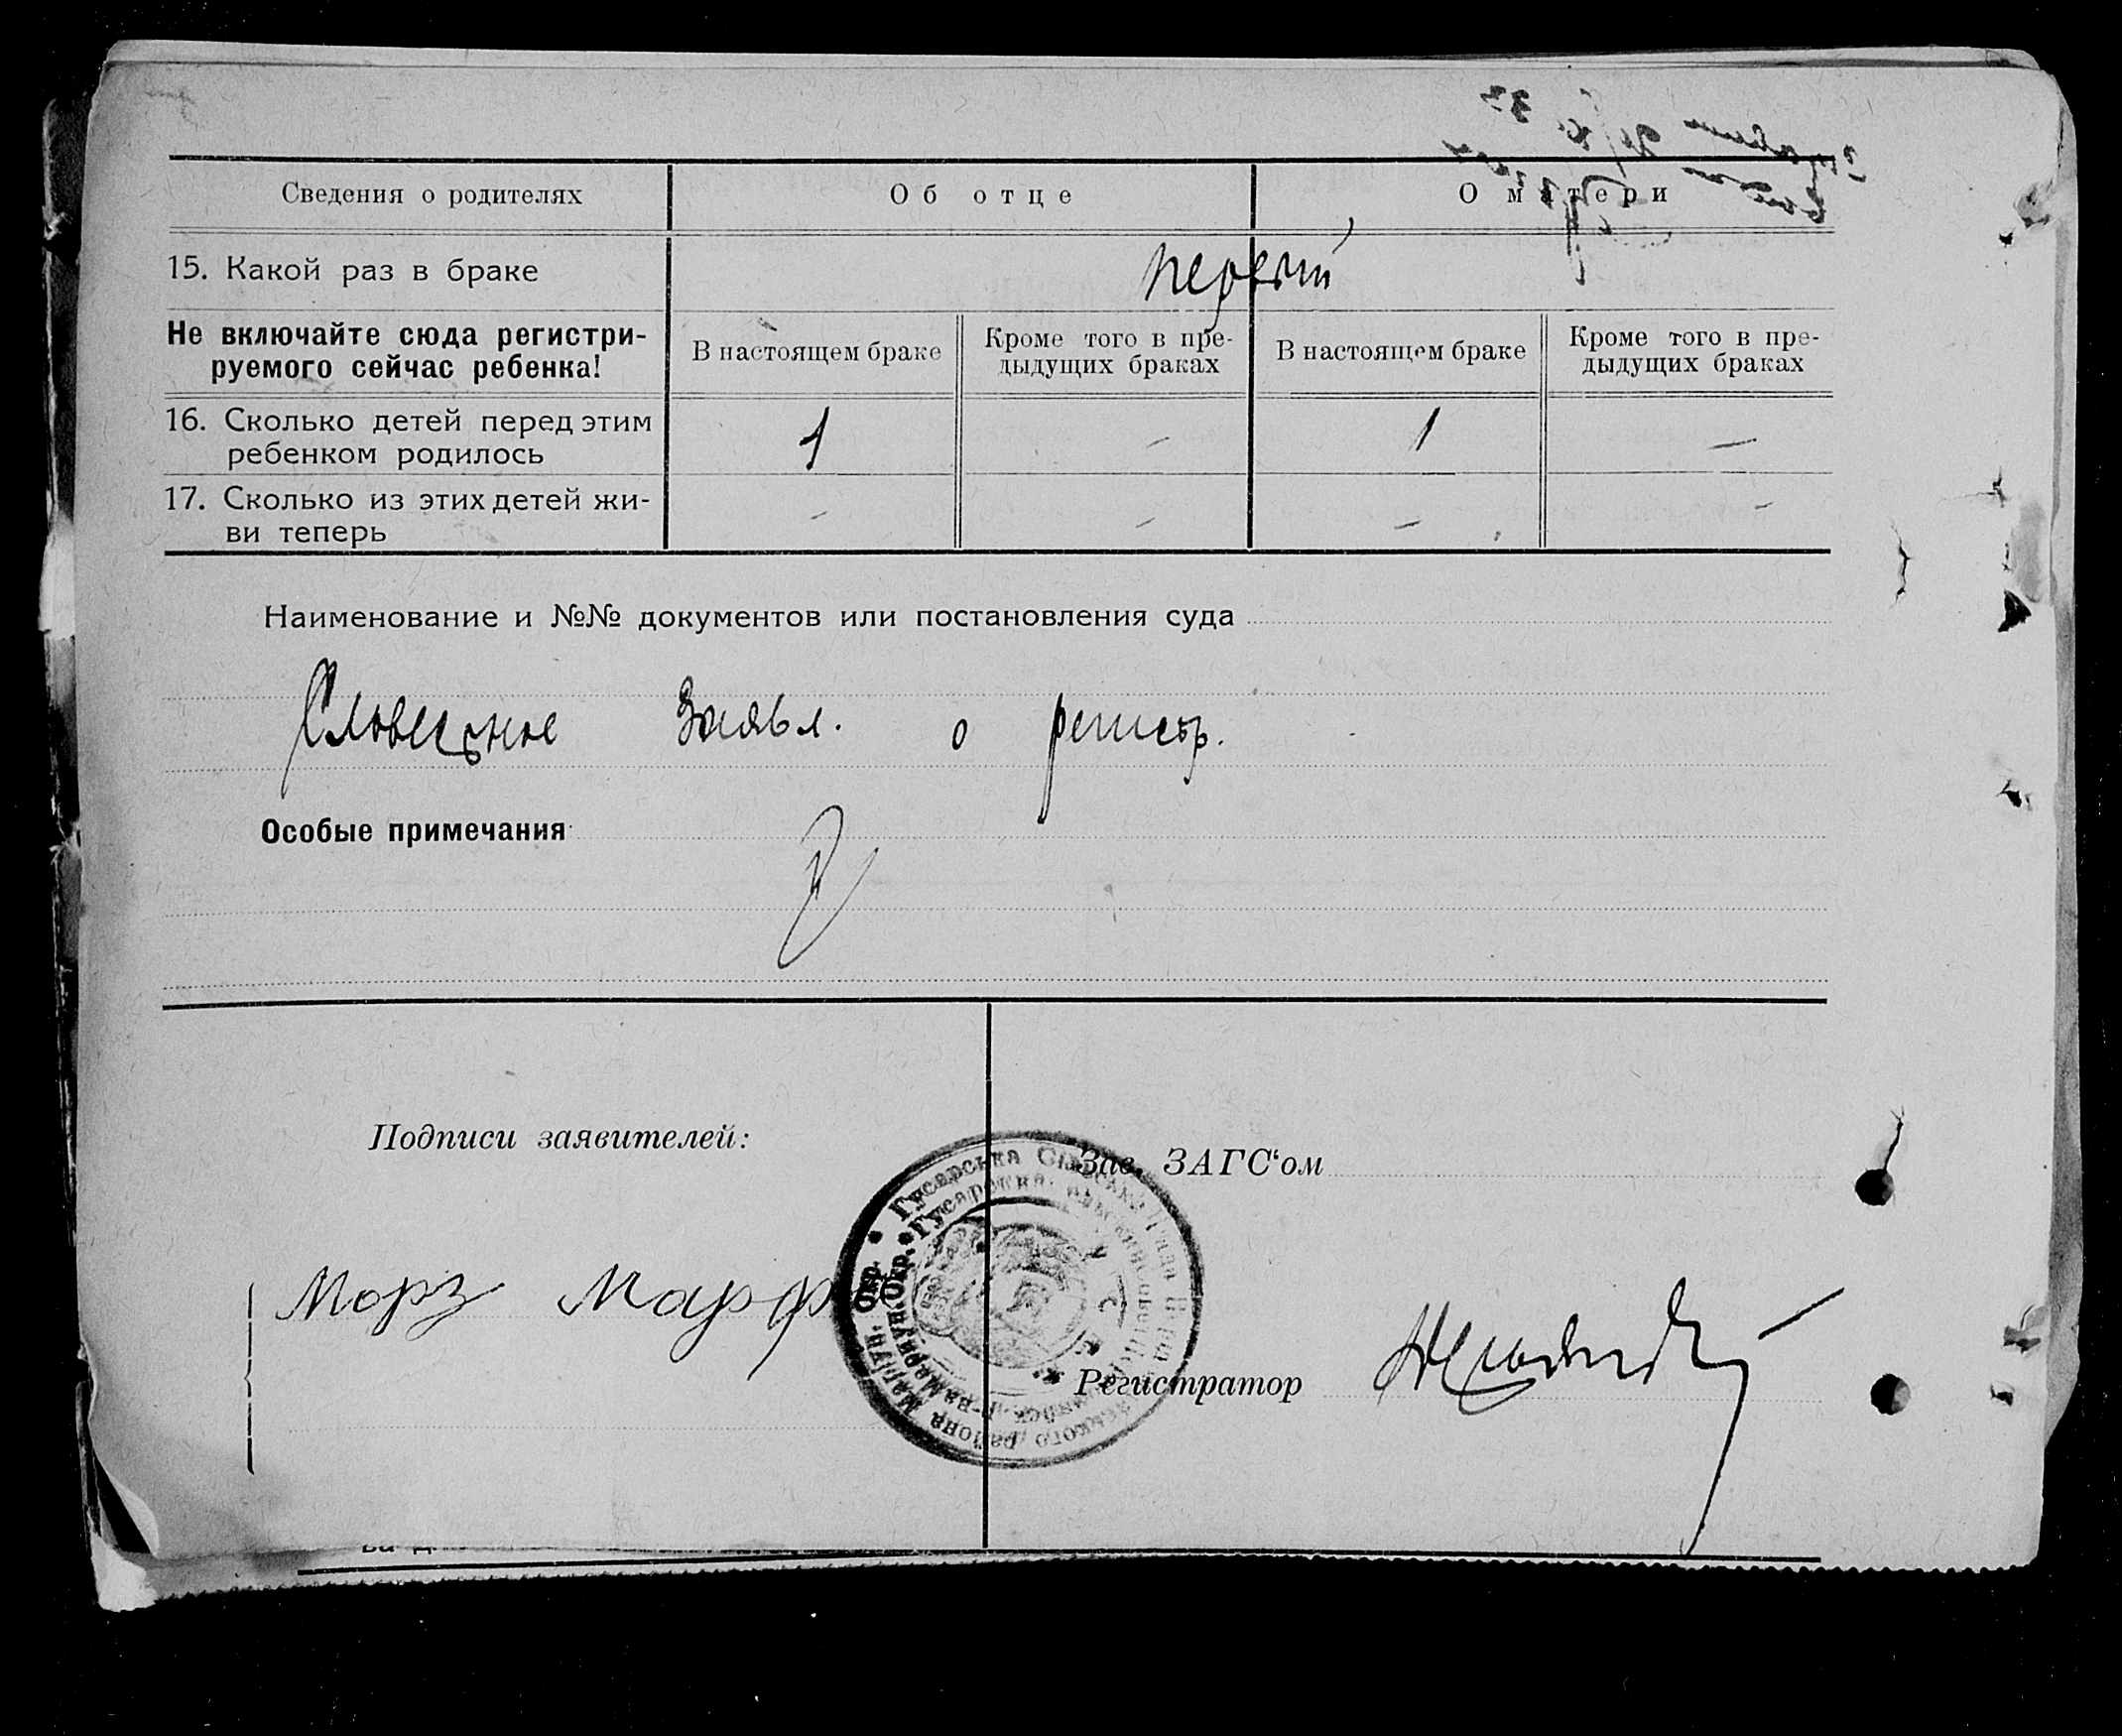 Сведения о родителях
Об отце
О матери
15. Какой раз в браке
первый
Не включайте сюда регистри-
руемого сейчас ребенка!
В настоящем браке
Кроме того в пре-
дыдущих браках
В настоящем браке
Кроме того в пре-
дыдущих браках
16. Сколько детей перед этим
ребенком родилось
1 - 1 -
17. Сколько из этих детей жи-
ви теперь
- - - -
Наименование и №№ документов или постановления суда
Словесное заявл. о регистр.
Особые примечания
Подписи заявителей:
Зав. ЗАГС‘ом
Морз Марф
Регистратор
Гусарська
района Маріуп. Окр.